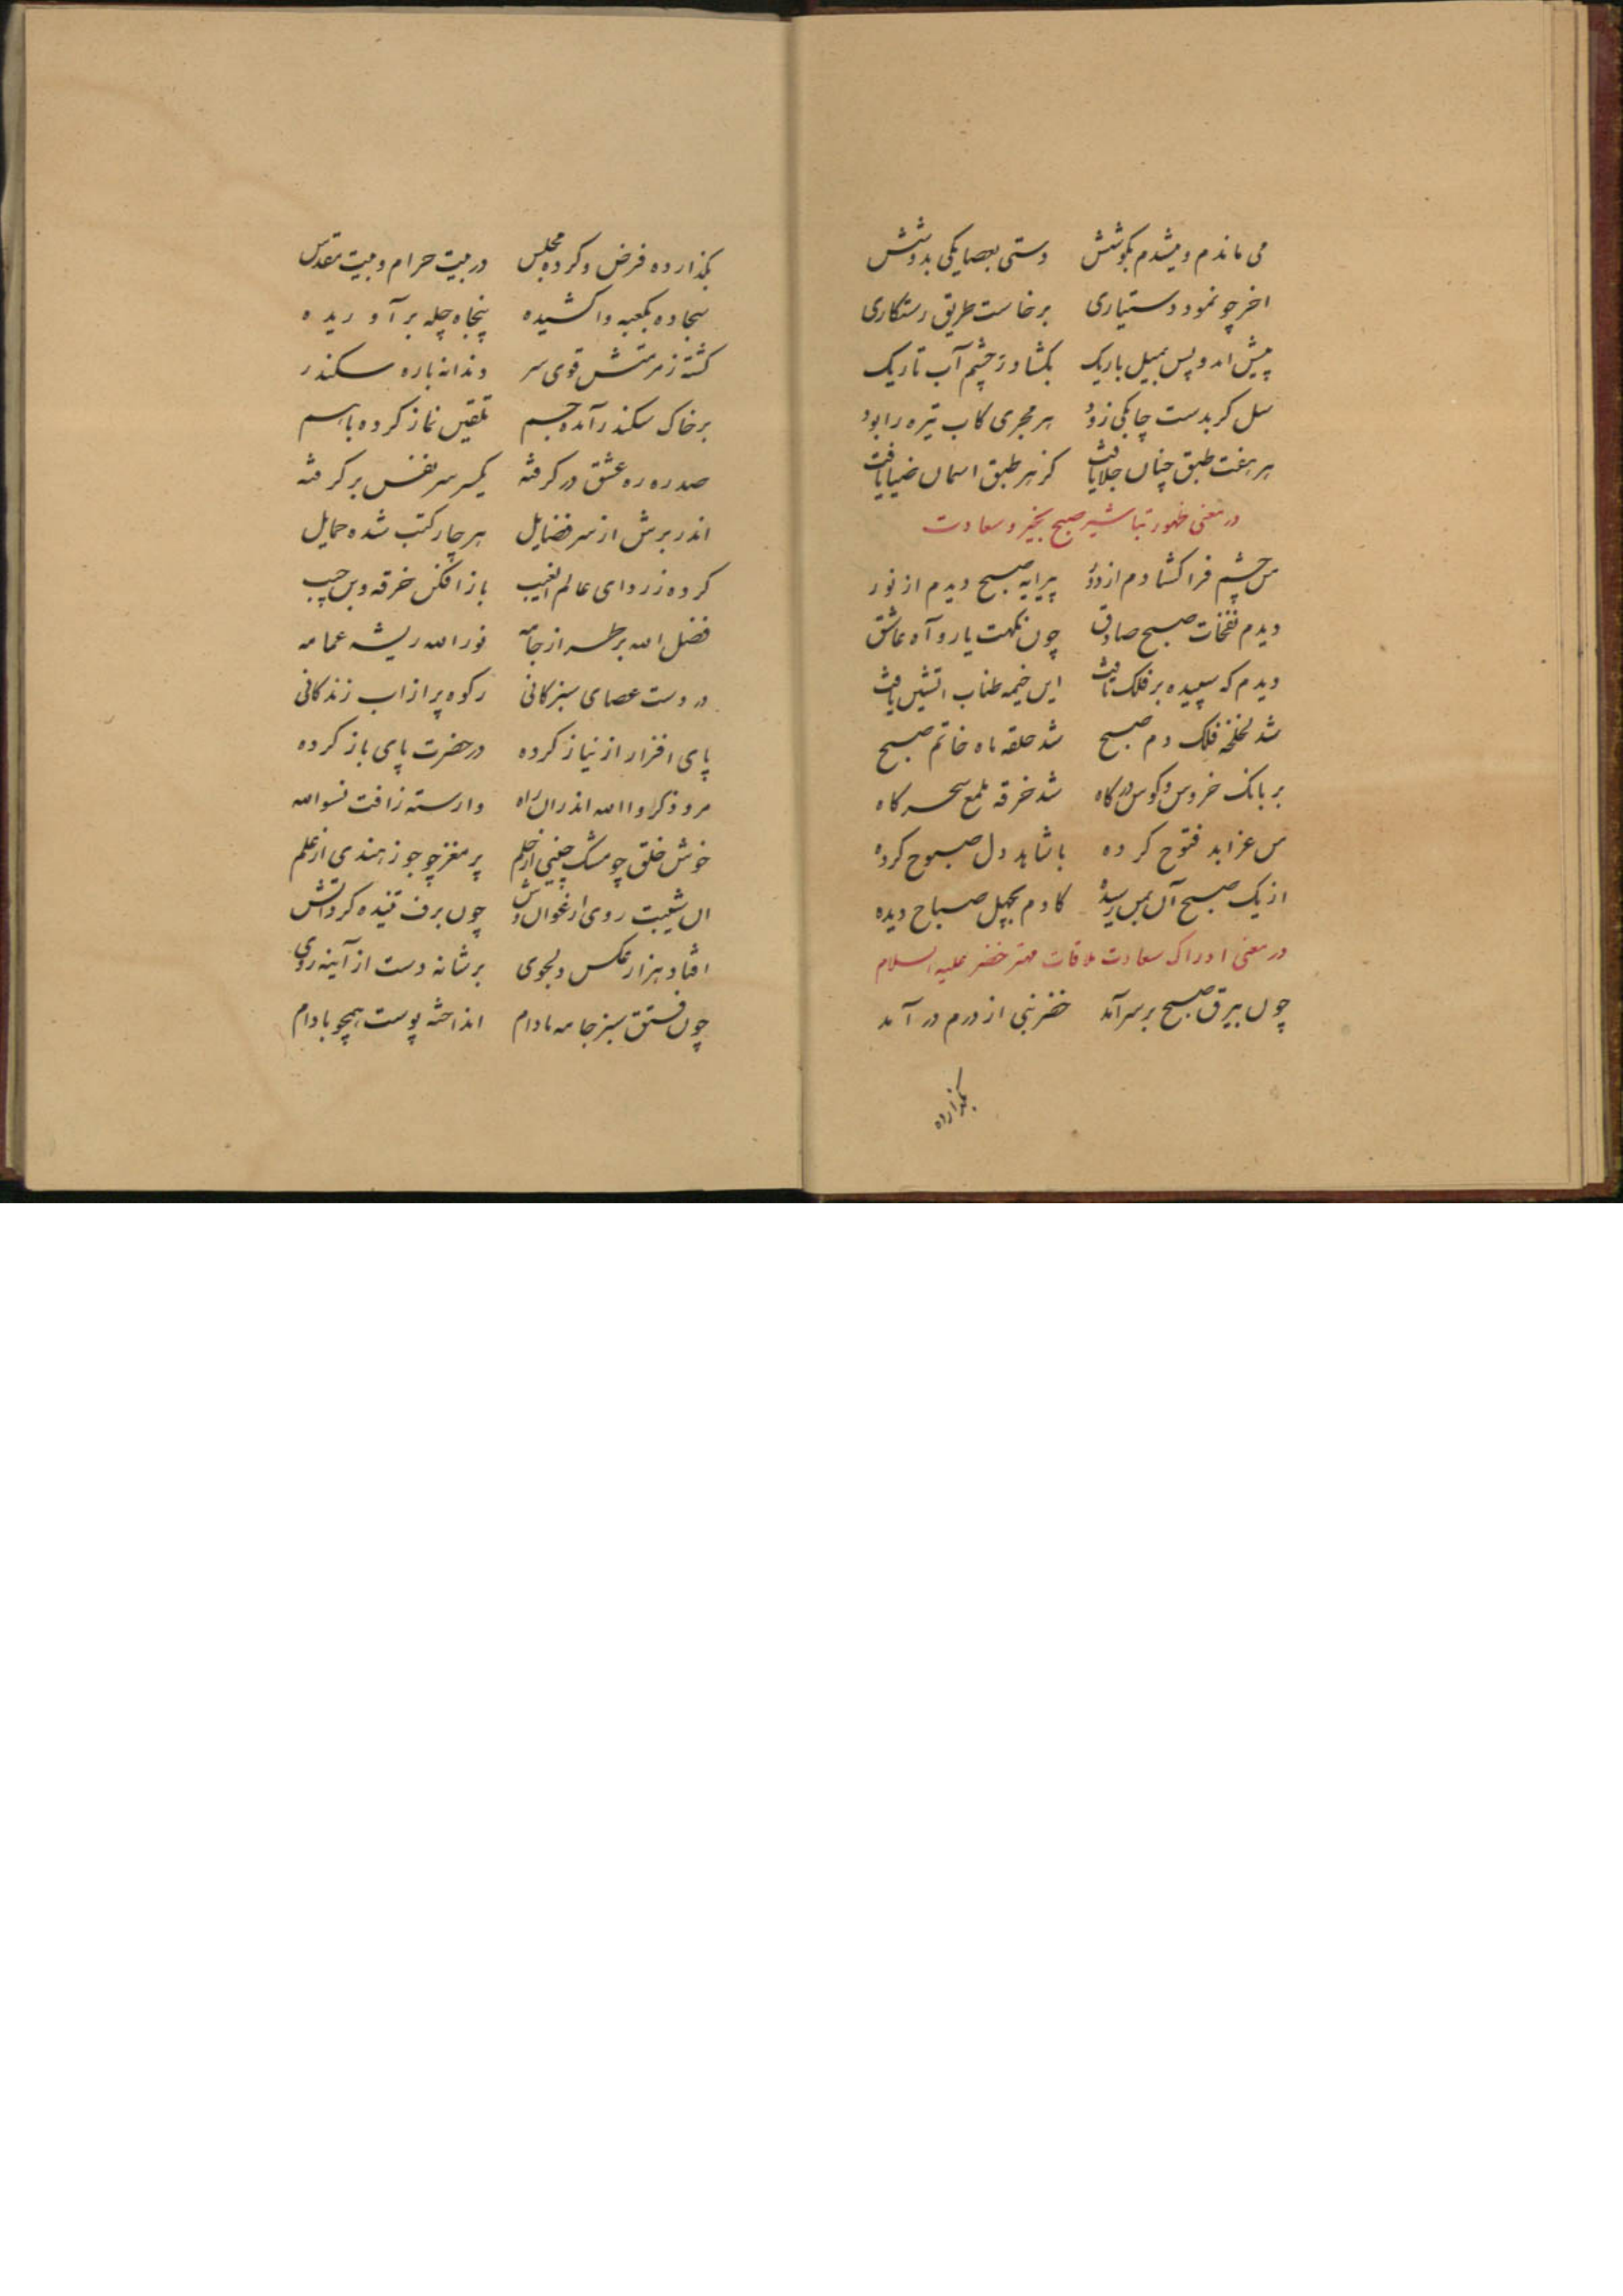 می ماندم و میشدم بکوشش دستی بعصا یکی بدوشش
اخر چو نمود دستیاری برخاست طریق رستکاری
پیش امد و پس بمیل باریک بکشاد ز چشم آب تاریک
سل کر بدست چابکی زود هر مجری کاب تیره را بود
هر هفت طبق چنان جلا یافت کز هر طبق اسمان ضیا یافت
در معنی ظهور تباشیر صبح بخیر و سعادت
من چشم فرا کشادم از دور پیرایه صبح دیدم از نور
دیدم نفخات صبح صادق چون نکهت یار و آه عاشق
دیدم که سپیده بر فلک تافت این خیمه طناب اتشین یافت
شد لخلخه فلک دم صبح شد حلقه ماه خاتم صبح
بر بانک خروس و کوس درکاه شد خرقه ملمع سحرکاه
من عزا بد فتوح کرده با شاهد دل صبوح کرده
از یک صبح آن بمن رسیده کادم بچهل صباح دیده
در معنی ادراک سعادت ملاقات مهتر خضر علیه السلام
چون بیرق صبح بر سر آمد خضر نبی از درم در آمد
بکذارده
بکذارده فرض و کرده مجلس در بیت حرام و بیت مقدس
سجاده بکعبه وا کشیده پنجاه چله بر آوریده
کشته ز مرمتش قوی سر دندانه باره سکندر
بر خاک سکندر آمده جسم تلقین نماز کرده با اسم
صد ره ره عشق در کرفته یکسر سر نفس بر کرفته
اندر برش از سر فضایل هر چار کتب شده حمایل
کرده ز ردای عالم الغیب باز افکن خرقه وبن جیب
فضل الله بر طراز جامه نور الله ریشه عمامه
در دست عصای سبز کانی رکوه پر از اب زندکانی
پای افزار از نیاز کرده در حضرت پای باز کرده
مرو ذکروا الله اندران راه وارسته ز افت نسوا الله
خوش خلق چو مشک چینی از حلم پر مغز چو جوز هندی از علم
ان شیبت روی ارغوان وش چون برف تنیده کرد اتش
افتاد هزار عکس دلجوی بر شانه دست از آینه روی
چون فستق سبز جامه مادام انداخته پوست همچو بادام